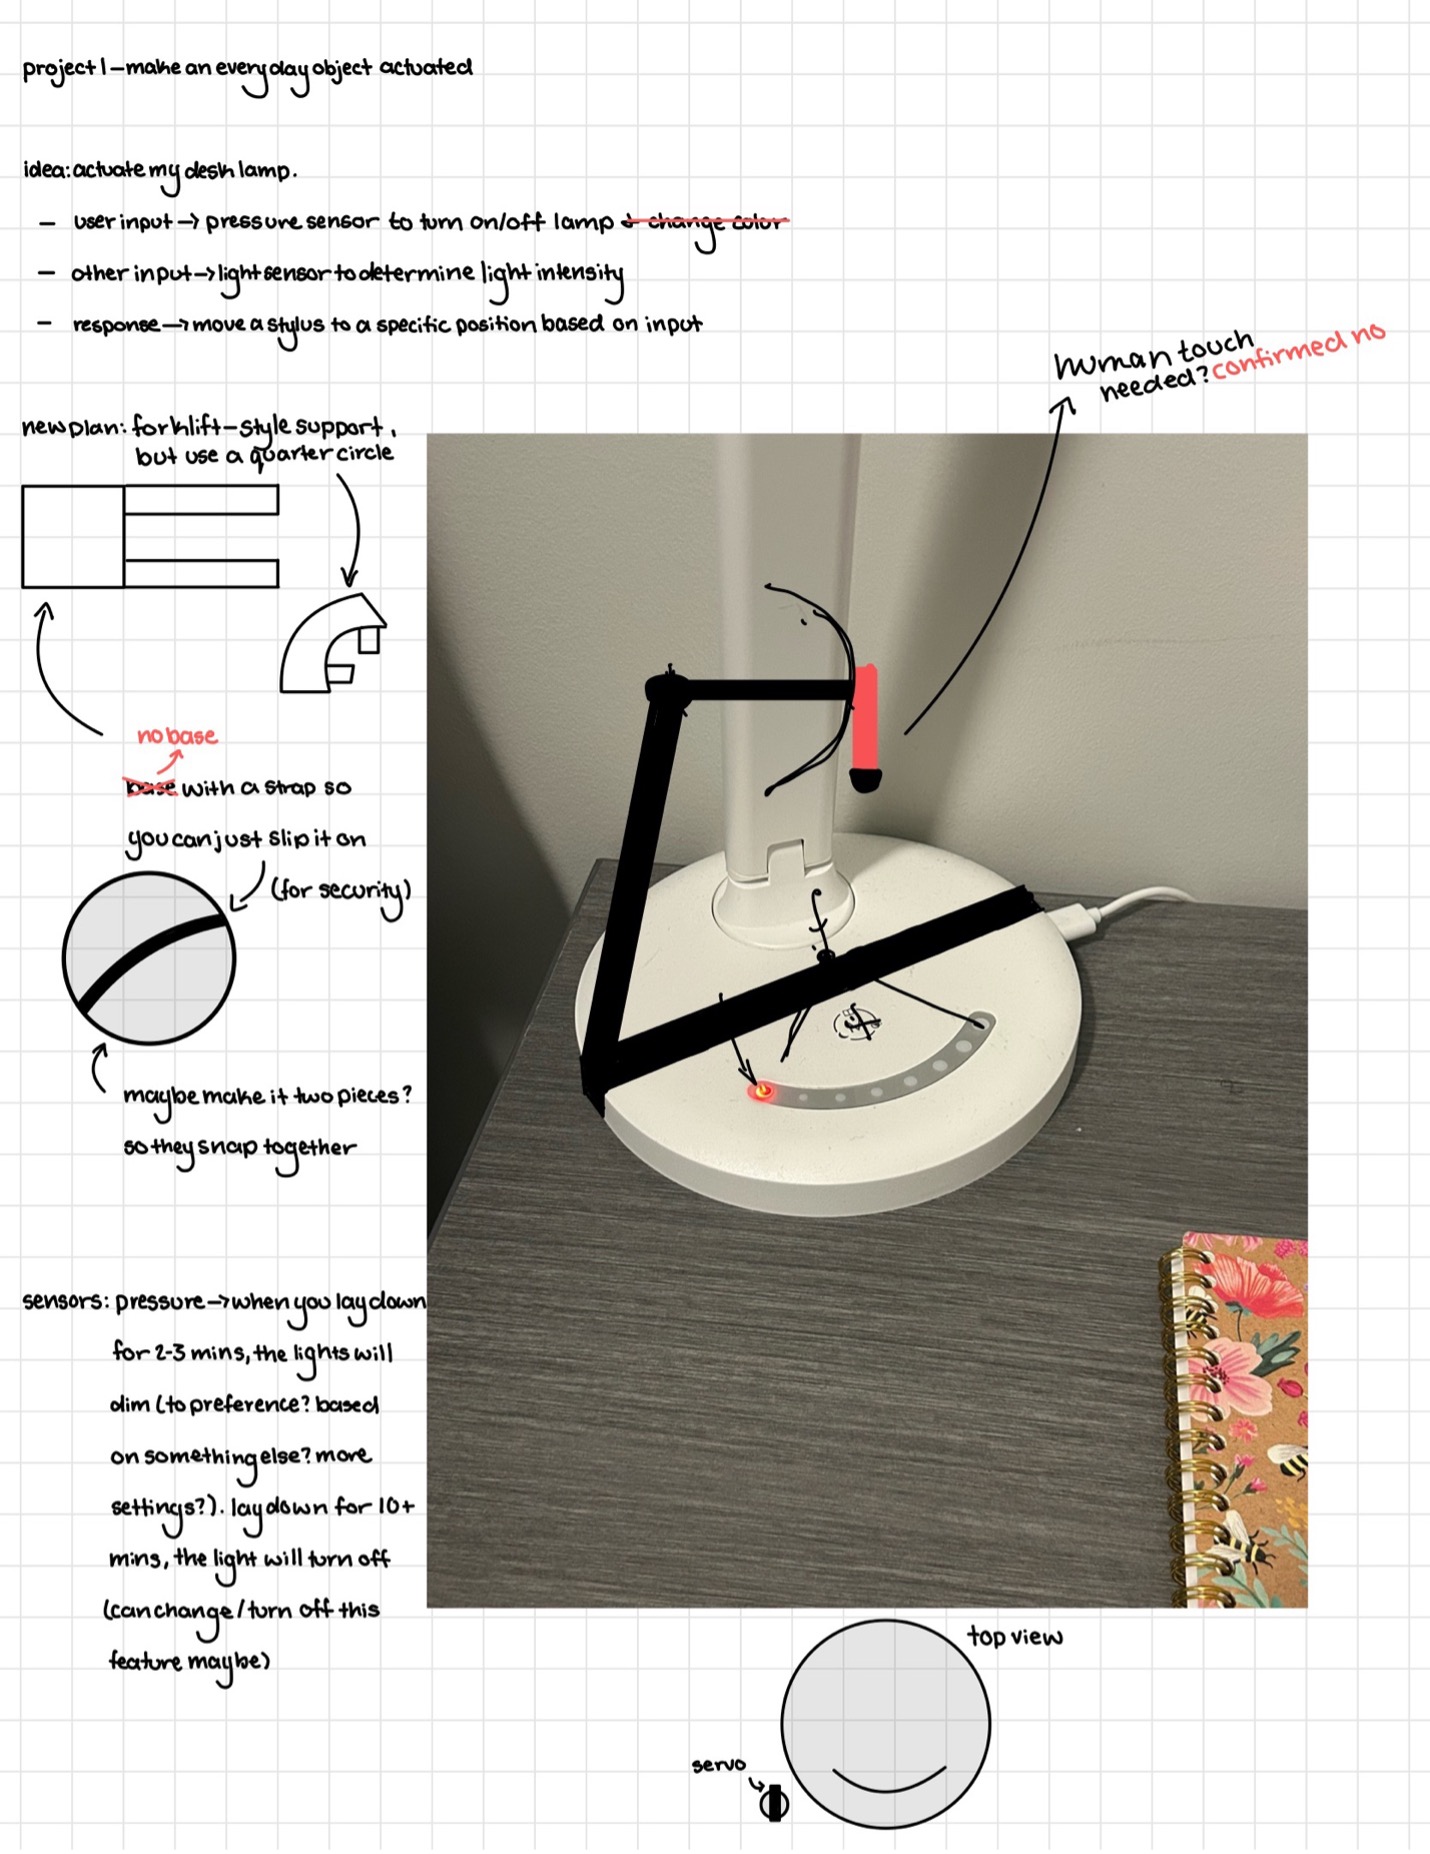 project 1 – make an everyday object actuated
idea: actuate my desk lamp.
– user input → pressure sensor to turn on/off lamp + change color
– other input → light sensor to determine light intensity
– response → move a stylus to a specific position based on input
human touch
needed? confirmed no
new plan: forklift-style support,
but use a quarter circle
no base
base with a strap so
you can just slip it on
(for security)
maybe make it two pieces?
so they snap together
sensors: pressure → when you lay down
for 2-3 mins, the lights will
dim (to preference? based
on something else? more
settings?). lay down for 10+
mins, the light will turn off
(can change / turn off this
feature maybe)
top view
servo